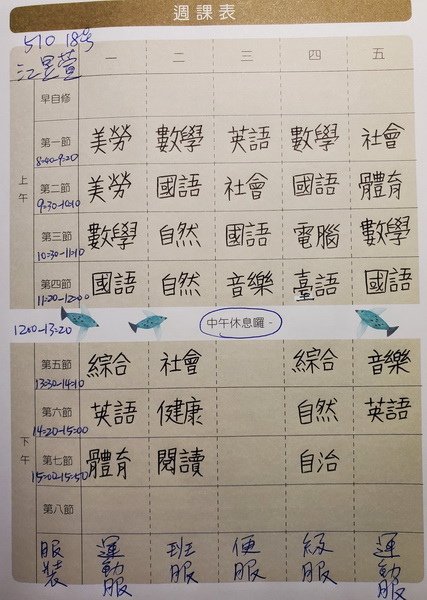 週課表
510 18號
江昱萱
一 二 三 四 五
早自修
上午
第一節 美勞 數學 英語 數學 社會
8:40-9:20
第二節 美勞 國語 社會 國語 體育
9:30-10:10
第三節 數學 自然 國語 電腦 數學
10:30-11:10
第四節 國語 自然 音樂 臺語 國語
11:20-12:00
12:00-13:20 中午休息囉~
下午
第五節 綜合 社會 綜合 音樂
13:30-14:10
第六節 英語 健康 自然 英語
14:20-15:00
第七節 體育 閱讀 自治
第八節
服裝 運動服 班服 便服 級服 運動服